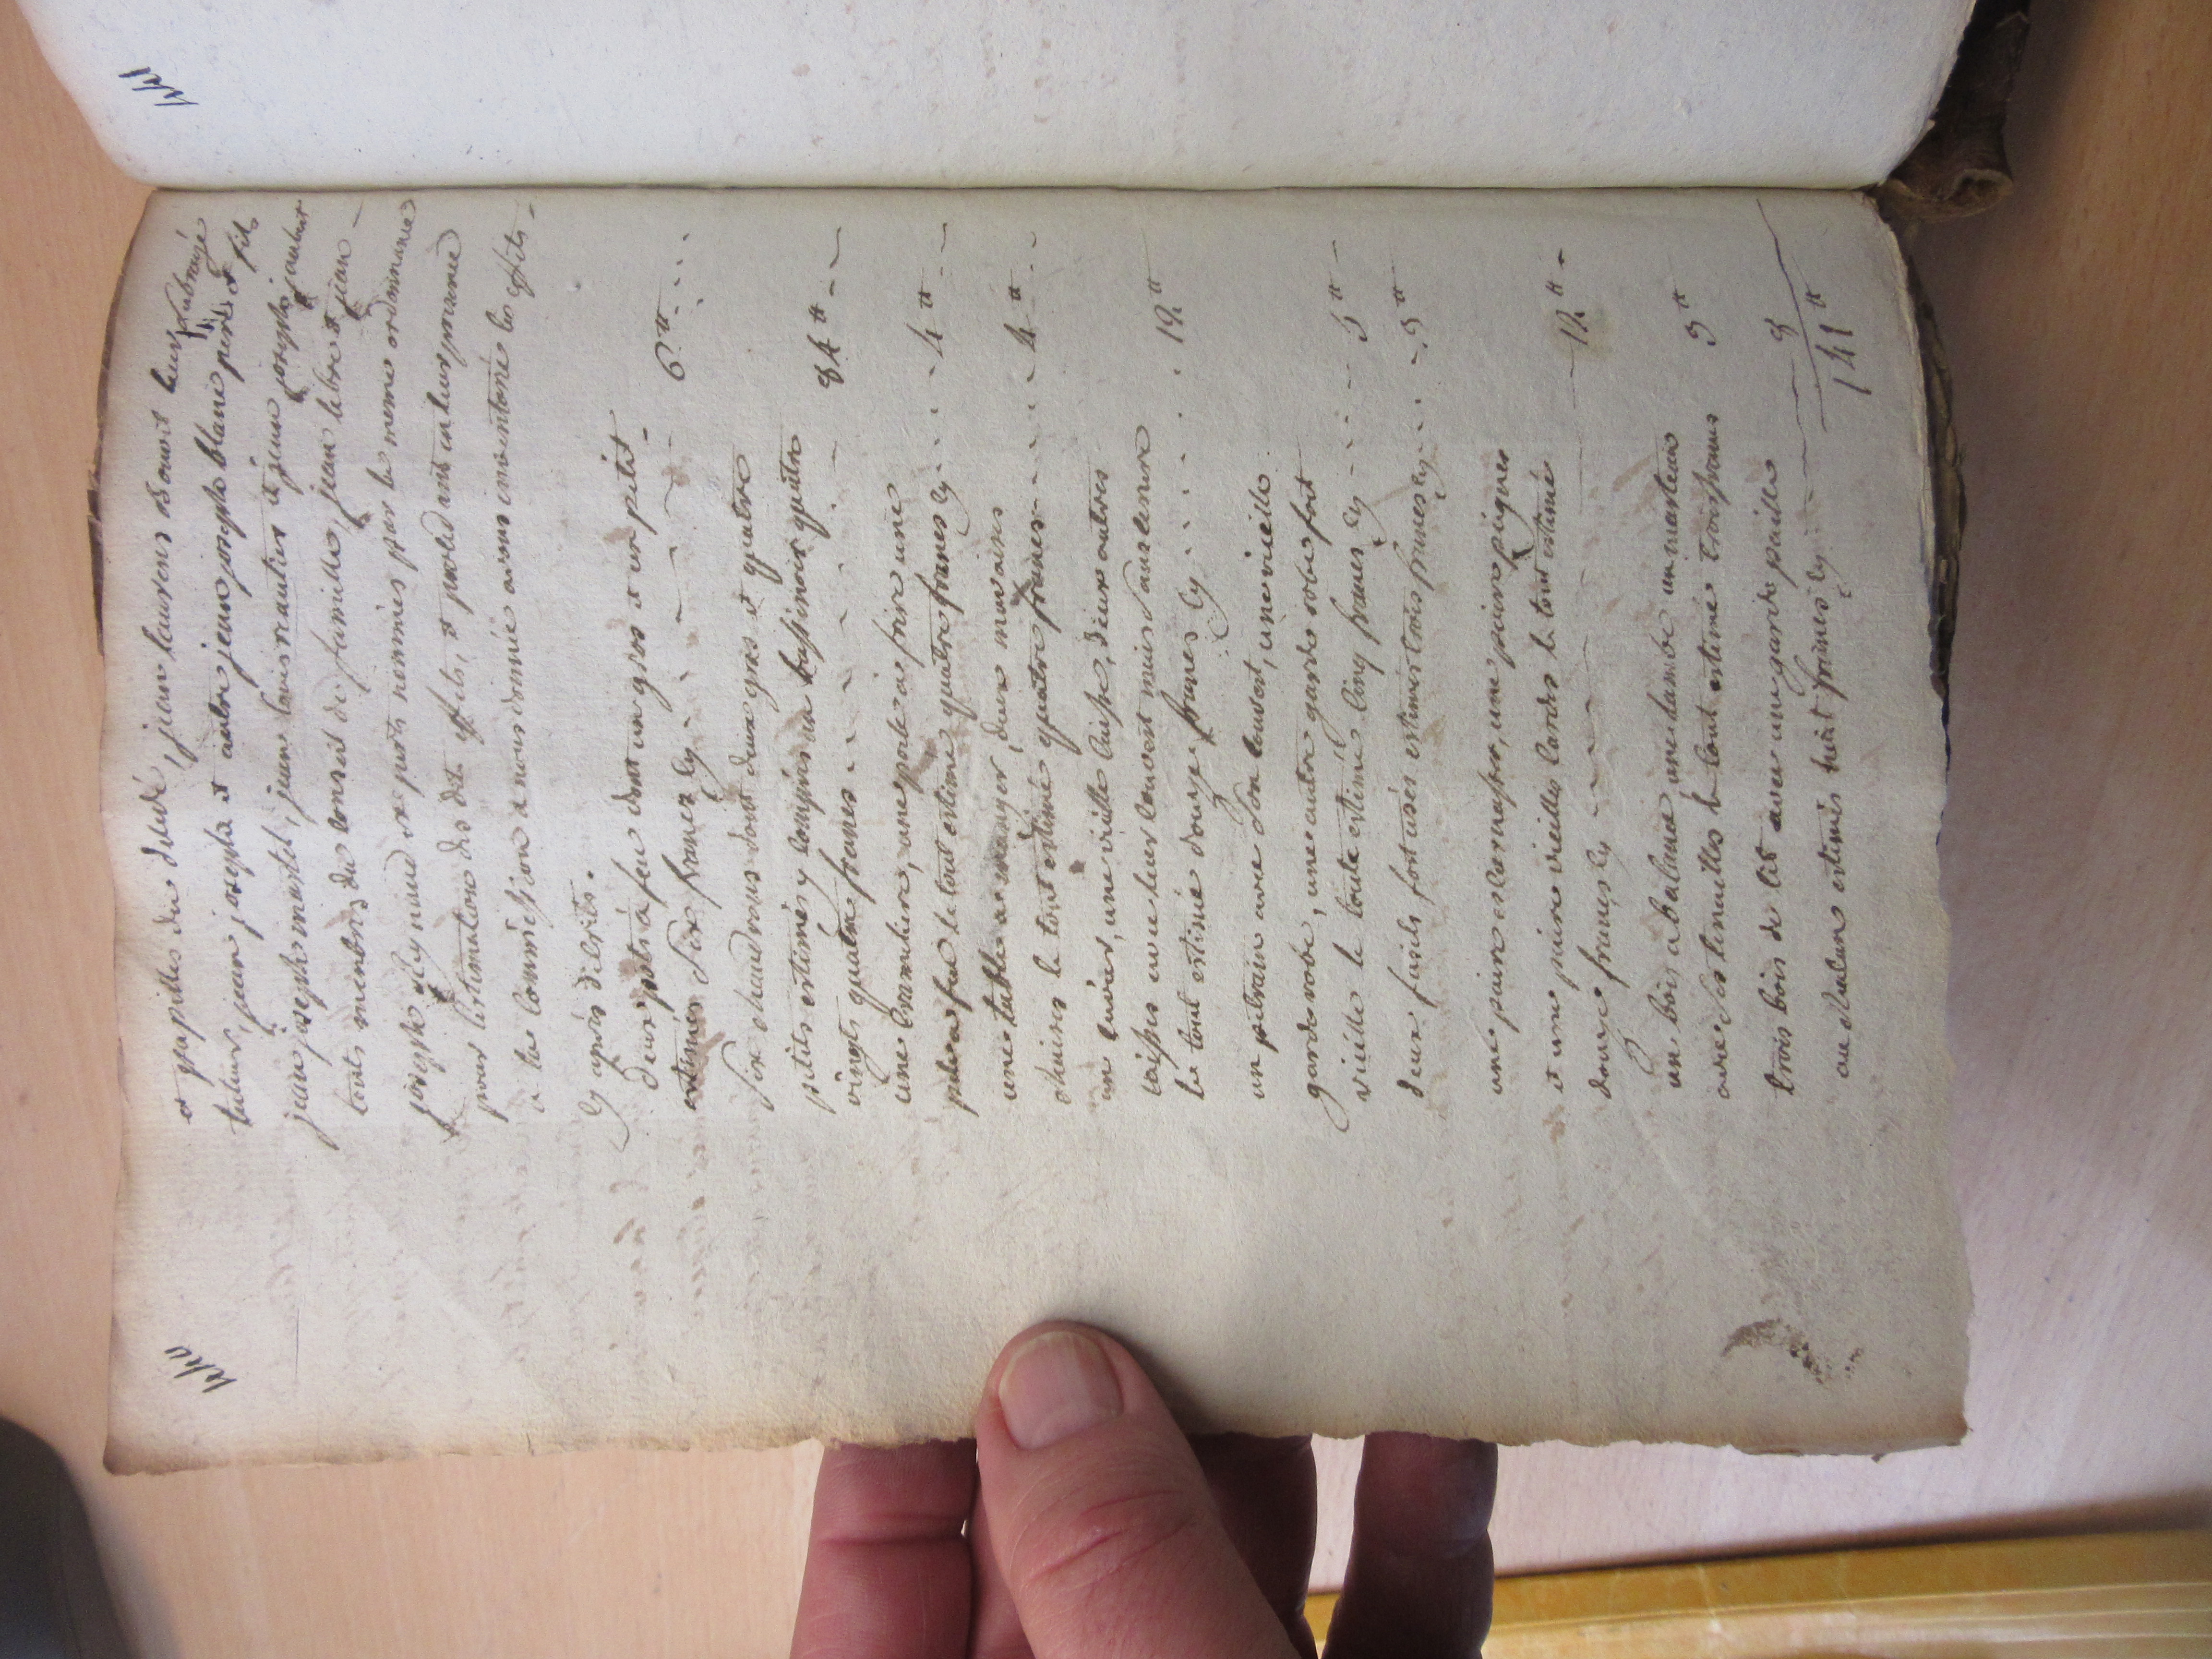 et pupilles du décédé, jean laurens benoit leur subrogé
tuteur, jean joseph et autre jean joseph blanc pere et fils
jean joseph martel, jean louis nautier et jean joseph jaubert
touts menbres du conseil de famille, jean lebre et jean
joseph aleynaud experts nommés par la meme ordonnance
pour lestimation des dits effets, et proced ant en leur presence
a la commission a nous donnée avons inventorié les effets
cy après decrits.
deux pots a feu dont un gros et un petit
estimés six francs cy 6 ₶
six chaudrons dont deux gros et quatre
petits estimés y compris un bassinoir quatre
vingts quatre francs 84 ₶
une cramaliere, une poele a frire une
pele a feu le tout estimé quatre francs cy 4 ₶
une table a manger, deux mauvaises
chaises le tout estimé quatre francs 4 ₶
un cuvier, une vieille caisse, deux autres
caisses avec leur couvert mais sans serrure
le tout estimé douze francs cy 12 ₶
un petrain avec son couvert, une vieille
garderobe, une autre garde robe fort
vieille le toute estimé cinq francs cy 5 ₶
deux fusils fort usés estimés trois francs cy 3 ₶
une paire escarnassos, une paire peignes
et une paire vieilles cardes le tout estimé 12 ₶
douze francs cy
un bois a balance, une lambe un marteau
avec ses tenailles le tout estimé trois francs 3 ₶
trois bois de lit avec une garde paille
au chalun estimés huit francs cy 8
141 ₶